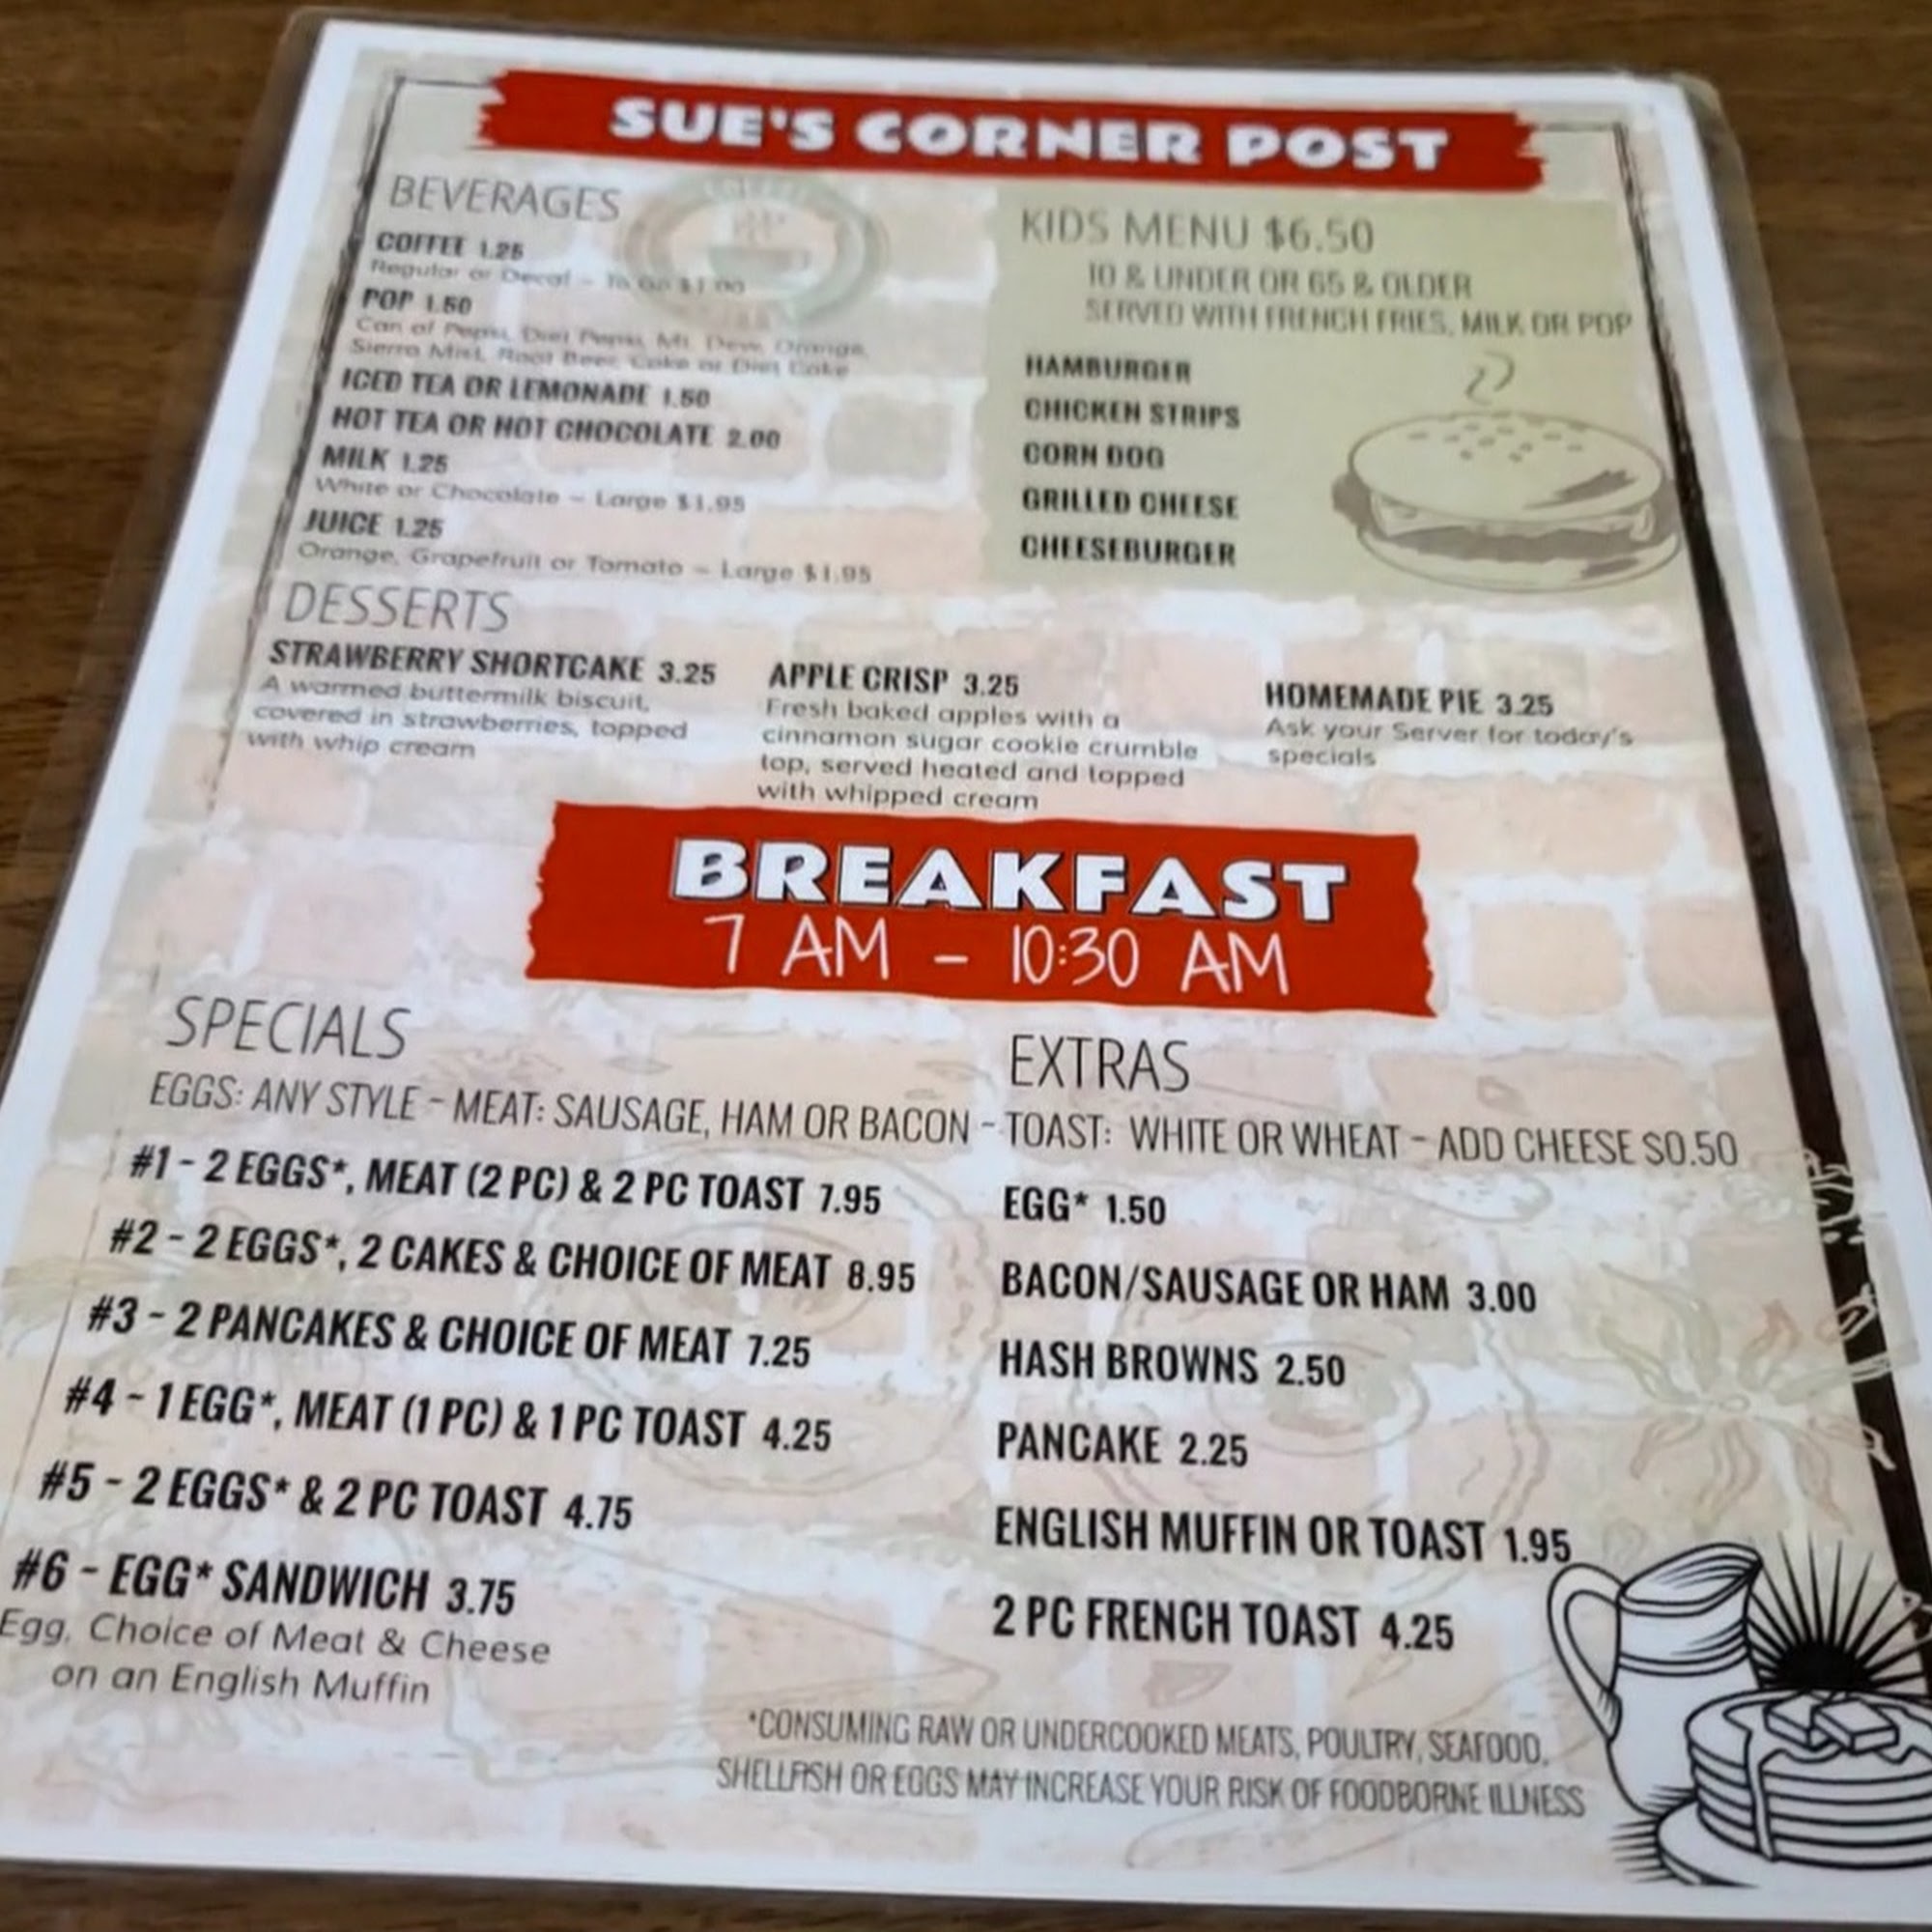 SUE'S CORNER POST
BEVERAGES
COFFEE 1.25
Regular or Decaf - To Go $1.00
POP 1.50
Can of Pepsi, Diet Pepsi, Mt. Dew, Orange,
Sierra Mist, Root Beer, Coke or Diet Coke
ICED TEA OR LEMONADE 1.50
HOT TEA OR HOT CHOCOLATE 2.00
MILK 1.25
White or Chocolate - Large $1.95
JUICE 1.25
Orange, Grapefruit or Tomato - Large $1.95
KIDS MENU $6.50
10 & UNDER OR 65 & OLDER
SERVED WITH FRENCH FRIES, MILK OR POP
HAMBURGER
CHICKEN STRIPS
CORN DOG
GRILLED CHEESE
CHEESEBURGER
DESSERTS
STRAWBERRY SHORTCAKE 3.25
A warmed buttermilk biscuit,
covered in strawberries, topped
with whip cream
APPLE CRISP 3.25
Fresh baked apples with a
cinnamon sugar cookie crumble
top, served heated and topped
with whipped cream
HOMEMADE PIE 3.25
Ask your Server for today's
specials
BREAKFAST
7 AM - 10:30 AM
SPECIALS
EXTRAS
EGGS: ANY STYLE - MEAT: SAUSAGE, HAM OR BACON - TOAST: WHITE OR WHEAT - ADD CHEESE $0.50
#1 - 2 EGGS*, MEAT (2 PC) & 2 PC TOAST 7.95
#2 - 2 EGGS*, 2 CAKES & CHOICE OF MEAT 8.95
#3 - 2 PANCAKES & CHOICE OF MEAT 7.25
#4 - 1 EGG*, MEAT (1 PC) & 1 PC TOAST 4.25
#5 - 2 EGGS* & 2 PC TOAST 4.75
#6 - EGG* SANDWICH 3.75
Egg, Choice of Meat & Cheese
on an English Muffin
EGG* 1.50
BACON/SAUSAGE OR HAM 3.00
HASH BROWNS 2.50
PANCAKE 2.25
ENGLISH MUFFIN OR TOAST 1.95
2 PC FRENCH TOAST 4.25
*CONSUMING RAW OR UNDERCOOKED MEATS, POULTRY, SEAFOOD,
SHELLFISH OR EGGS MAY INCREASE YOUR RISK OF FOODBORNE ILLNESS